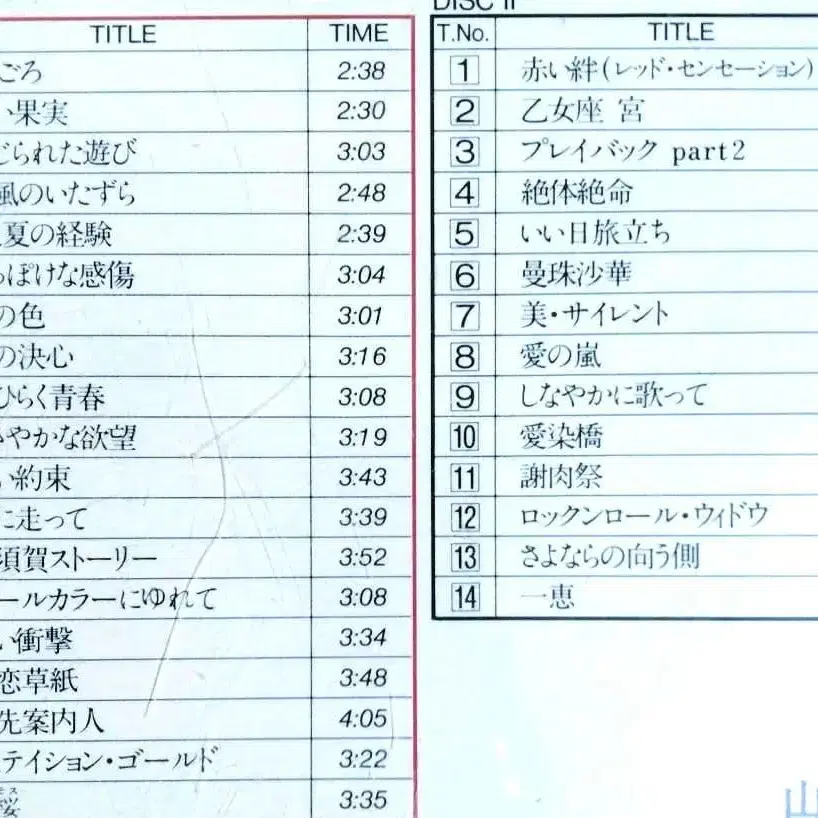 TITLE TIME
ごろ 2:38
い果実 2:30
じられた遊び 3:03
風のいたずら 2:48
夏の経験 2:39
っぽけな感傷 3:04
の色 3:01
の決心 3:16
ひらく青春 3:08
やかな欲望 3:19
い約束 3:43
に走って 3:39
須賀ストーリー 3:52
ールカラーにゆれて 3:08
い衝撃 3:34
恋草紙 3:48
先案内人 4:05
テイション・ゴールド 3:22
桜 3:35
DISC II
T.No. TITLE
1 赤い絆(レッド・センセーション)
2 乙女座 宮
3 プレイバック part2
4 絶体絶命
5 いい日旅立ち
6 曼珠沙華
7 美・サイレント
8 愛の嵐
9 しなやかに歌って
10 愛染橋
11 謝肉祭
12 ロックンロール・ウィドウ
13 さよならの向う側
14 一恵
山